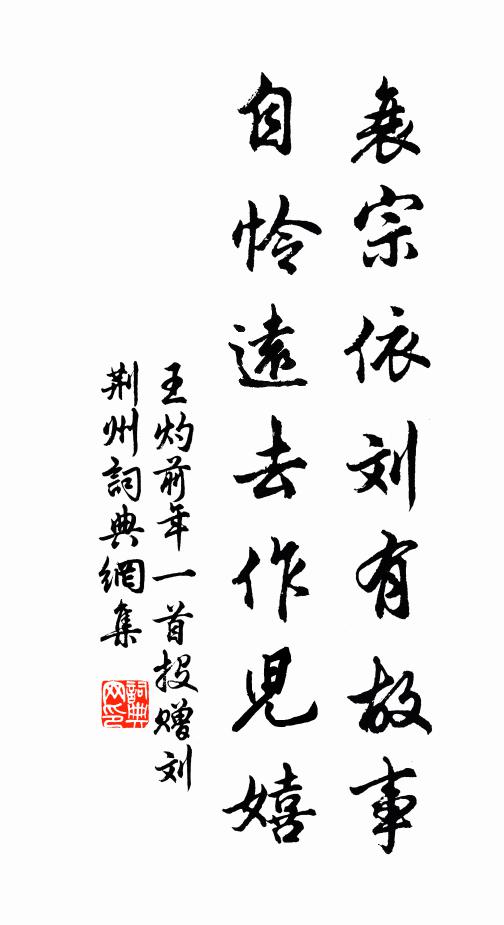 衰宗依刘有故事
自怜遠去作児嬉
王灼前年一首投赠刘
荆州詞典網集
詞典
网印